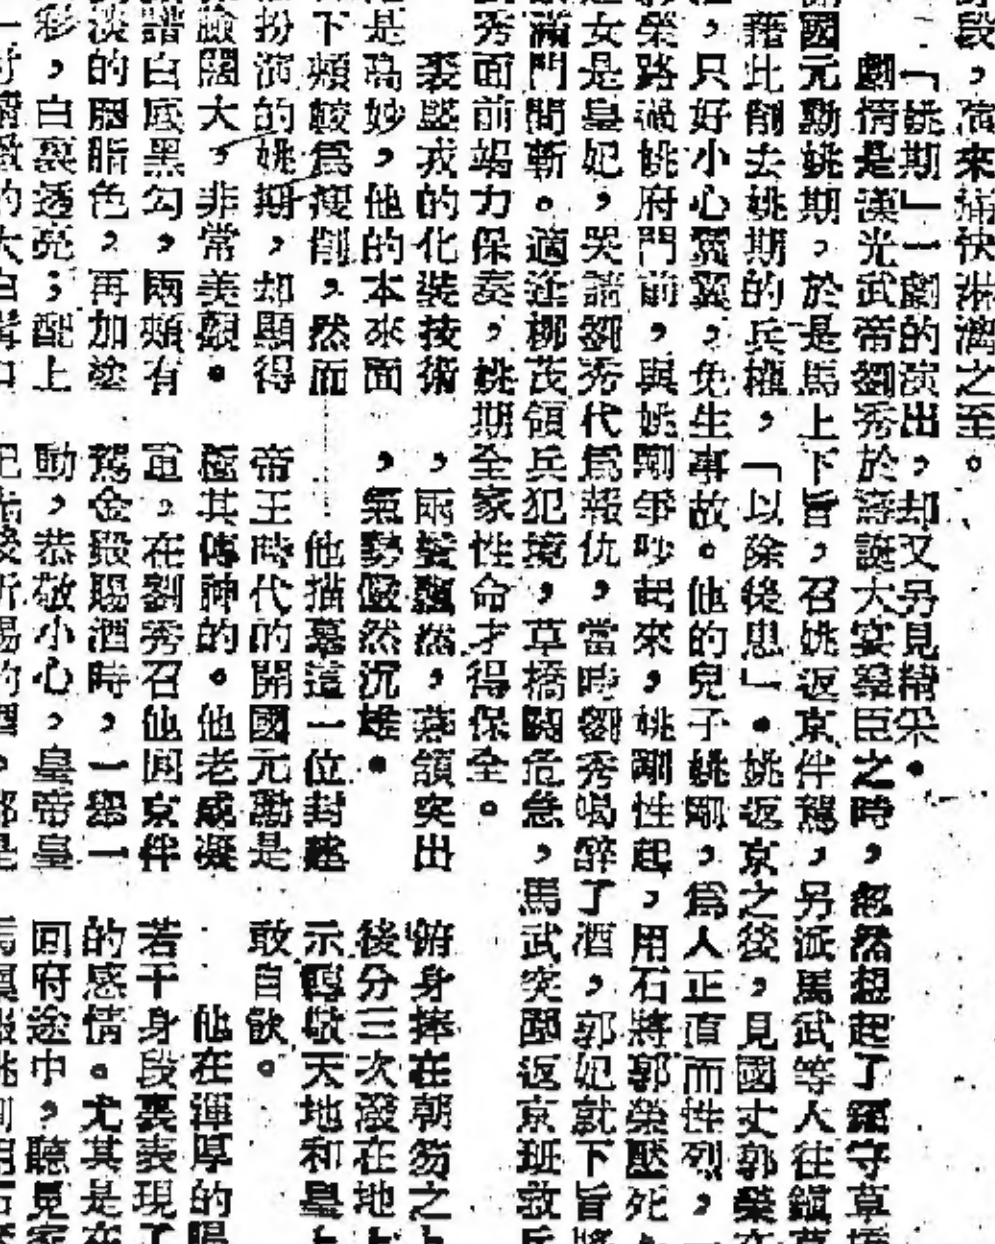 段，演來痛快淋漓之至。
「姚期」一劇的演出，却又另見精采。
劇情是漢光武帝劉秀於壽誕大宴羣臣之時，忽然想起了鎮守草橋
國元勳姚期，於是馬上下旨，召姚返京伴駕，另派馬武等人往鎮草
藉此削去姚期的兵權，「以除後患」。姚返京之後，見國丈郭榮在
，只好小心翼翼，免生事故。他的兒子姚剛，爲人正直而性烈，
榮路過姚府門前，與姚剛爭吵起來，姚剛性起，用石將郭榮壓死
女是皇妃，哭請劉秀代爲報仇，當時劉秀喝醉了酒，郭妃就下旨將
滿門問斬。適逢柳茂領兵犯境，草橋關危急，馬武突圍返京班救兵
秀面前竭力保奏，姚期全家性命才得保全。
裘盛戎的化裝技術
是高妙，他的本來面
下頰較爲瘦削，然而
扮演的姚期，却顯得
臉闊大，非常美顏。
譜白底黑勾，兩頰有
淡的胭脂色，再加塗
彩，白裏透亮；配上
，兩鬢飄然，燕頷突出
，氣勢儼然沉雄。
他描摹這一位封建
帝王時代的開國元勳是
極其傳神的。他老成凝
重。在劉秀召他回京伴
駕金殿賜酒時，一舉一
動，恭敬小心，皇帝皇
俯身捧在朝笏之上
後分三次潑在地上
示尊敬天地和皇上
敢自飲。
他在渾厚的唱
若干身段裏表現了
的感情。尤其是在
回府途中，聽見家